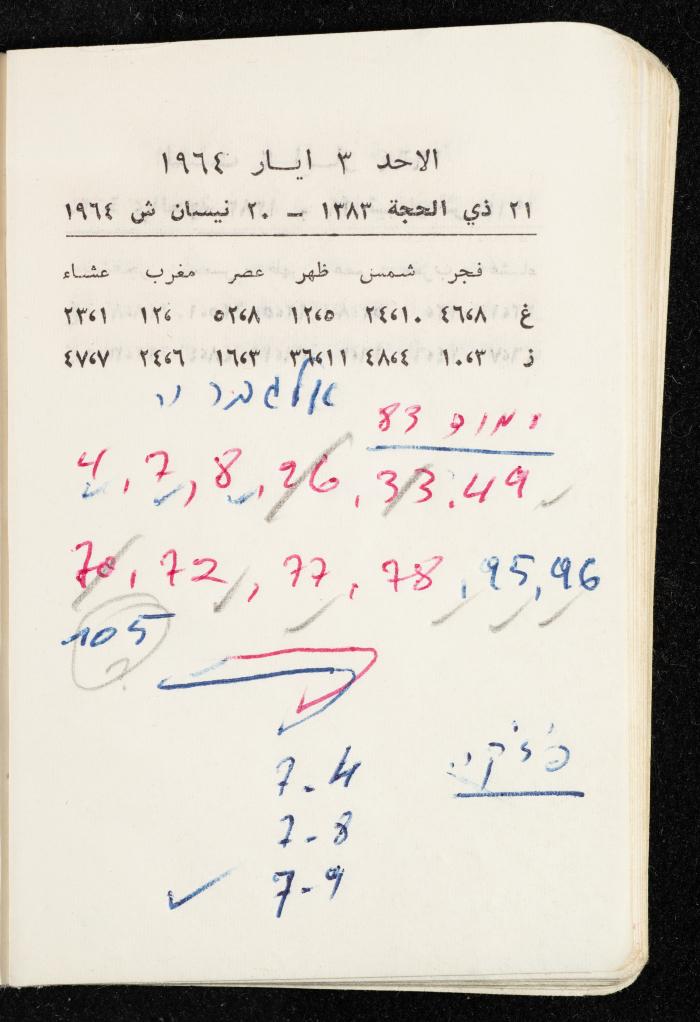 الاحد ٣ ايـار ١٩٦٤
٢١ ذي الحجة ١٣٨٣ – ٢٠ نيسان ش ١٩٦٤
فجر شمس ظهر عصر مغرب عشاء
غ ٤٦،٨ ٢٤،١٠ ١٢،٥ ٥٢،٨ ١٢، ٢٣،١
ز ١٠،٣ ٤٨،٤ ٣٦،١١ ١٦،٣ ٢٤،٦ ٤٧،٧
אלגברה
83
4, 7, 8, 26, 33. 49
70, 72, 77, 78, 95, 96
105
?
פיזיקה
7-4
7-8
7-9